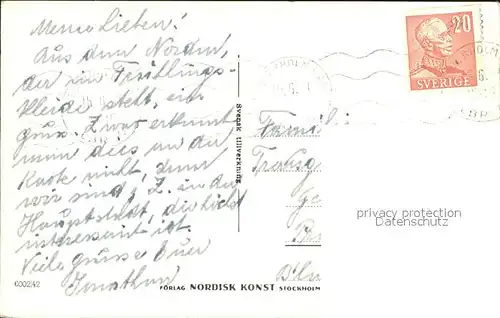 Meine Lieben!
Aus dem Norden,
der im Frühlings-
kleide steht, ein
gruss. Zwar erkennt
man dies an der
Karte nicht, denn
wir sind z. Z. in der
Hauptstadt, die höchst
interessant ist.
Viele Grüsse Euer
Jonathan
20
SVERIGE
Svensk tillverkning
Famili
privacy protection
Datenschutz
600242
FÖRLAG NORDISK KONST STOCKHOLM